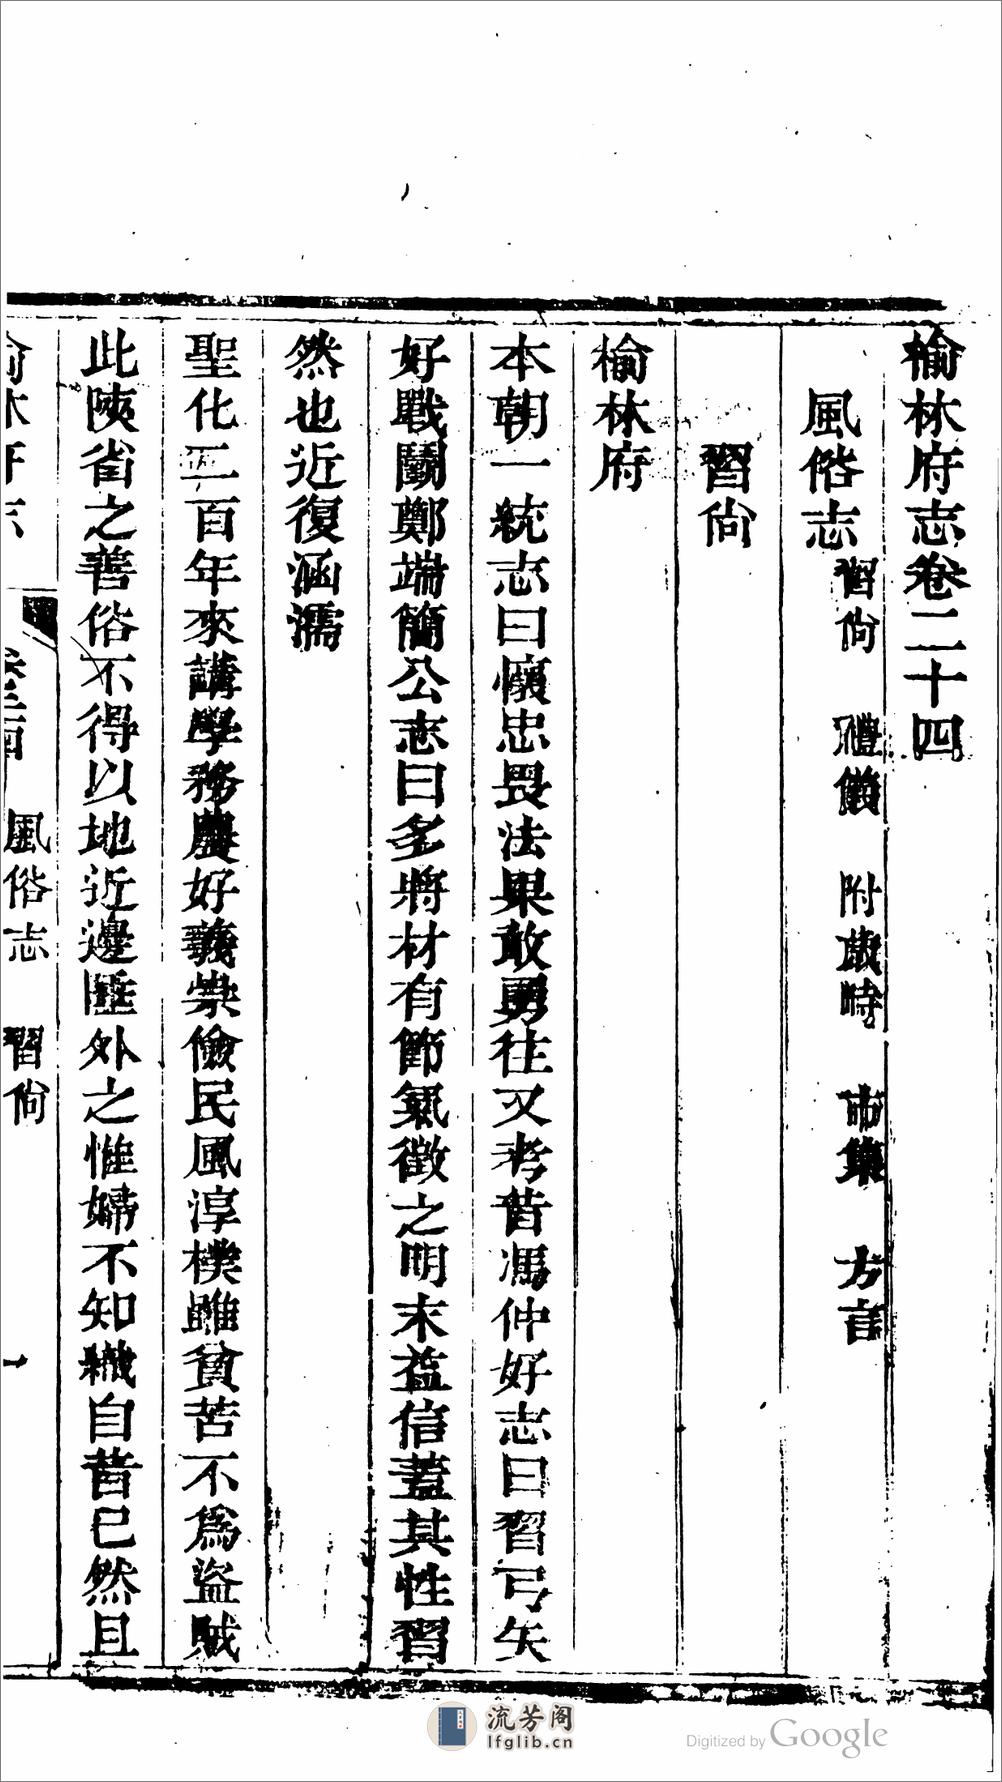 榆林府志卷二十四
風俗志 習尙 禮儀 附歲時 市集 方言
習尙
榆林府
本朝一統志曰懷忠畏法果敢勇往又考昔馮仲好志曰習弓矢
好戰鬬鄭端簡公志曰多將材有節氣徵之明末益信蓋其性習
然也近復涵濡
聖化二百年來講學務農好義崇儉民風淳樸雖貧苦不爲盜賊
此陝省之善俗不得以地近邊陲外之惟婦不知織自昔已然且
榆林府志 卷二十四 風俗志 習尙 一
流芳阁
lfglib.cn
Digitized by Google